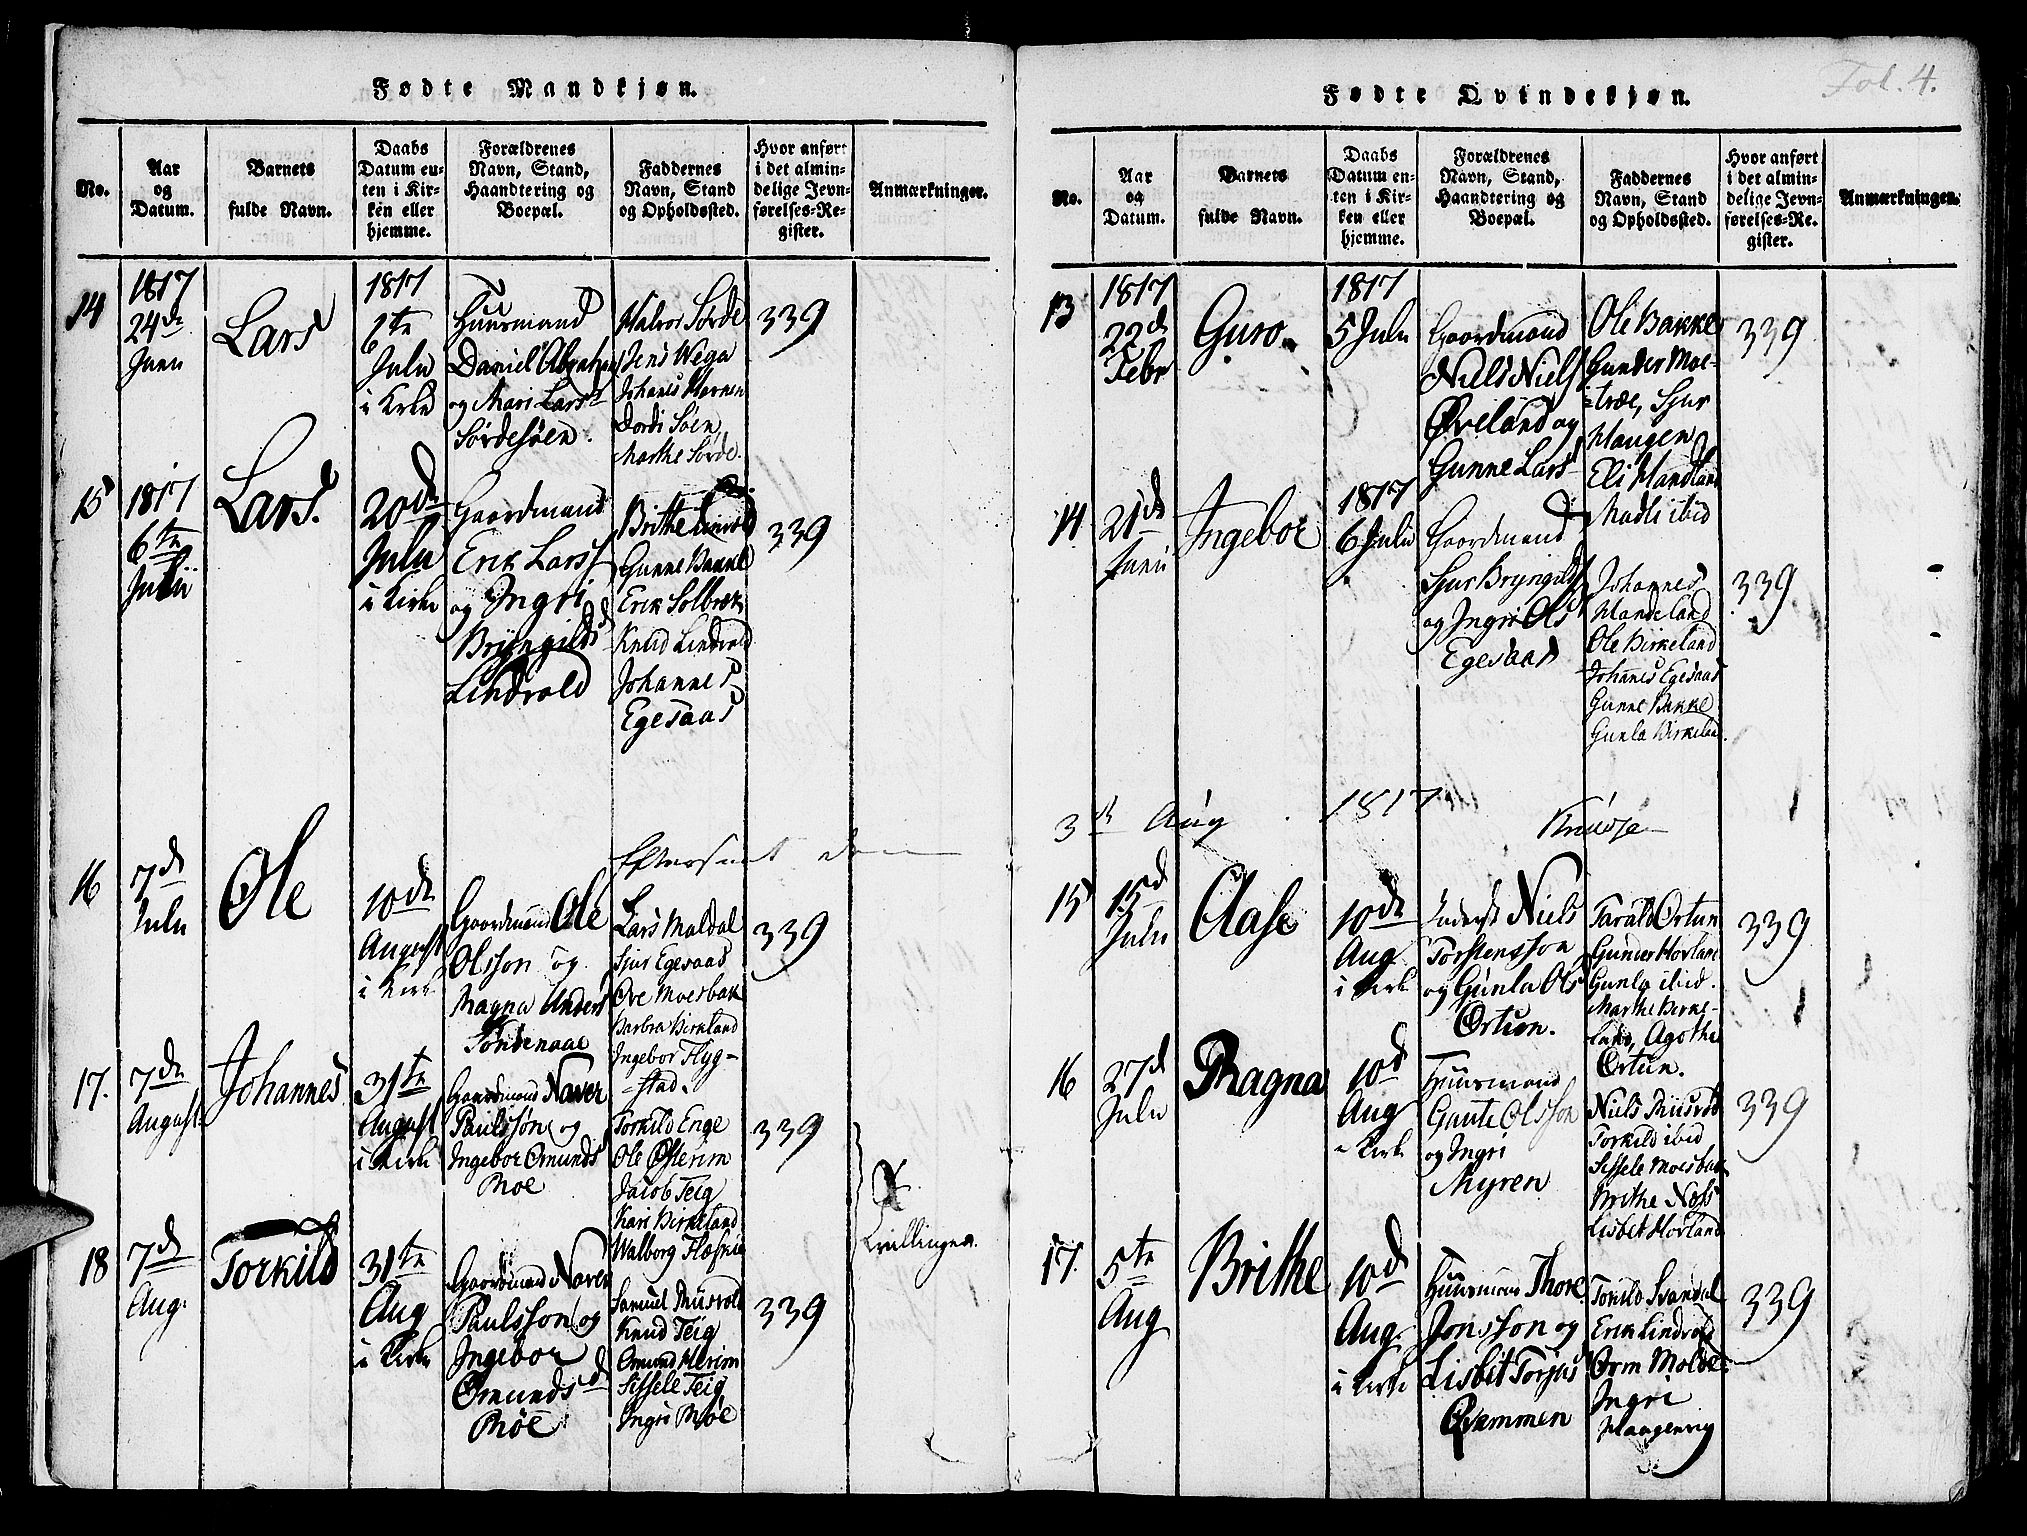 Fol. 4.
Fødte Mandkjøn.
No.
Aar
og
Datum.
Barnets
fulde Navn.
Daabs
Datum en-
ten i Kir-
ken eller
hjemme.
Forældrenes
Navn, Stand,
Haandtering og
Boepæl.
Faddernes
Navn, Stand
og Opholdssted.
Hvor anført
i det almin-
delige Jevn-
førelses-Re-
gister.
Anmærkninger.
14
1817
24de
Juni
Lars
1817
6te
Juli
i Kirke
Huusmand
Daniel Abraham
og Mari Lars
Sørdesøen.
Halvor Sørde
Jens Wega
Johanes
Dordi Søen
Marthe Sørde.
339
15
1817
6te
Julii
Lars.
20de
Juli
i Kirke
Gaardmand
Erik Lars
og Ingri
Bryngilds
Lindvold
Brithe
Gunne Bakke
Erik Solbrek
Knud Lindvold
Johannes
Egesaas
339
Eftersat den
16
7de
Juli
Ole
10de
August
i Kirk
Gaardmand Ole
Olsson og
Magna Anders
Tondenaae
Lars Maldal
Sjur Egesaad
Ove Moesbak
Barbra Birkland
Ingebor Flyg-
stad.
339
17.
7de
August
Johannes
31te
August
i Kirke
Gaardmand Naver
Paulssøn og
Ingebor Omunds
Moe
Torkild Enge
Ole Østerim
Jacob Teig
Kari Birkeland
Walborg
339
Tvillinger.
18
7de
Aug.
Torkild
31te
Aug
i Kirke
Gaardmand Naver
Paulsson og
Ingebor
Omundsd
Møe
Samuel Musvold
Knud Teig
Omund Herim
Sissele Teig
Ingri Møe
339
Fødte Qvindekjøn.
No.
Aar
og
Datum.
Barnets
fulde Navn.
Daabs
Datum en-
ten i Kir-
ken eller
hjemme.
Forældrenes
Navn, Stand,
Haandtering og
Boepæl.
Faddernes
Navn, Stand
og Opholdssted.
Hvor anført
i det almin-
delige Jevn-
førelses-Re-
gister.
Anmærkninger.
13
1817
22d
Febr
Guro.
1817
5 Juli
Gaardmand
Niels Niels
Øveland og
Gunne Lars
Ole Bakke
Gunder Moe-
træe, Sjur
Haugen
Eli Handland
Madli ibid
339
14
21de
Juni
Ingebor
1817
6 Juli
Gaardmand
Sjur Bryngilds
og Ingri Ols
Egesaas
Johannes
Handeland
Ole Birkeland
Johanes Egesaas
Gunne Bakke
Gunla Birkeland.
339
3de Aug 1817
15
15d
Juli
Aase
10de
Aug
i Kirk
Inderst Niels
Torstensson
og Gunla Ols
Ortun.
Tarald Ortun
Gunder Hovland
Gunla ibid.
Marthe Birke-
land, Agothe
Ortun.
339
16
27d
Juli
Magna
10d
Aug
i Kirk
Huusmand
Gaute Olsson
og Ingri
Myren
Niels Musvold
Torkild ibid
Sissele Moesbak
Brithe Næss
Lisbet Hovland
339
17.
5te
Aug
Brithe
10d
Aug
i Kirke
Huusmand Thore
Jonsson og
Lisbet Torjus
Qvammen
Torkild Svandal
Erik Lindvold
Orm Molde
Ingri
Haagenvig
339